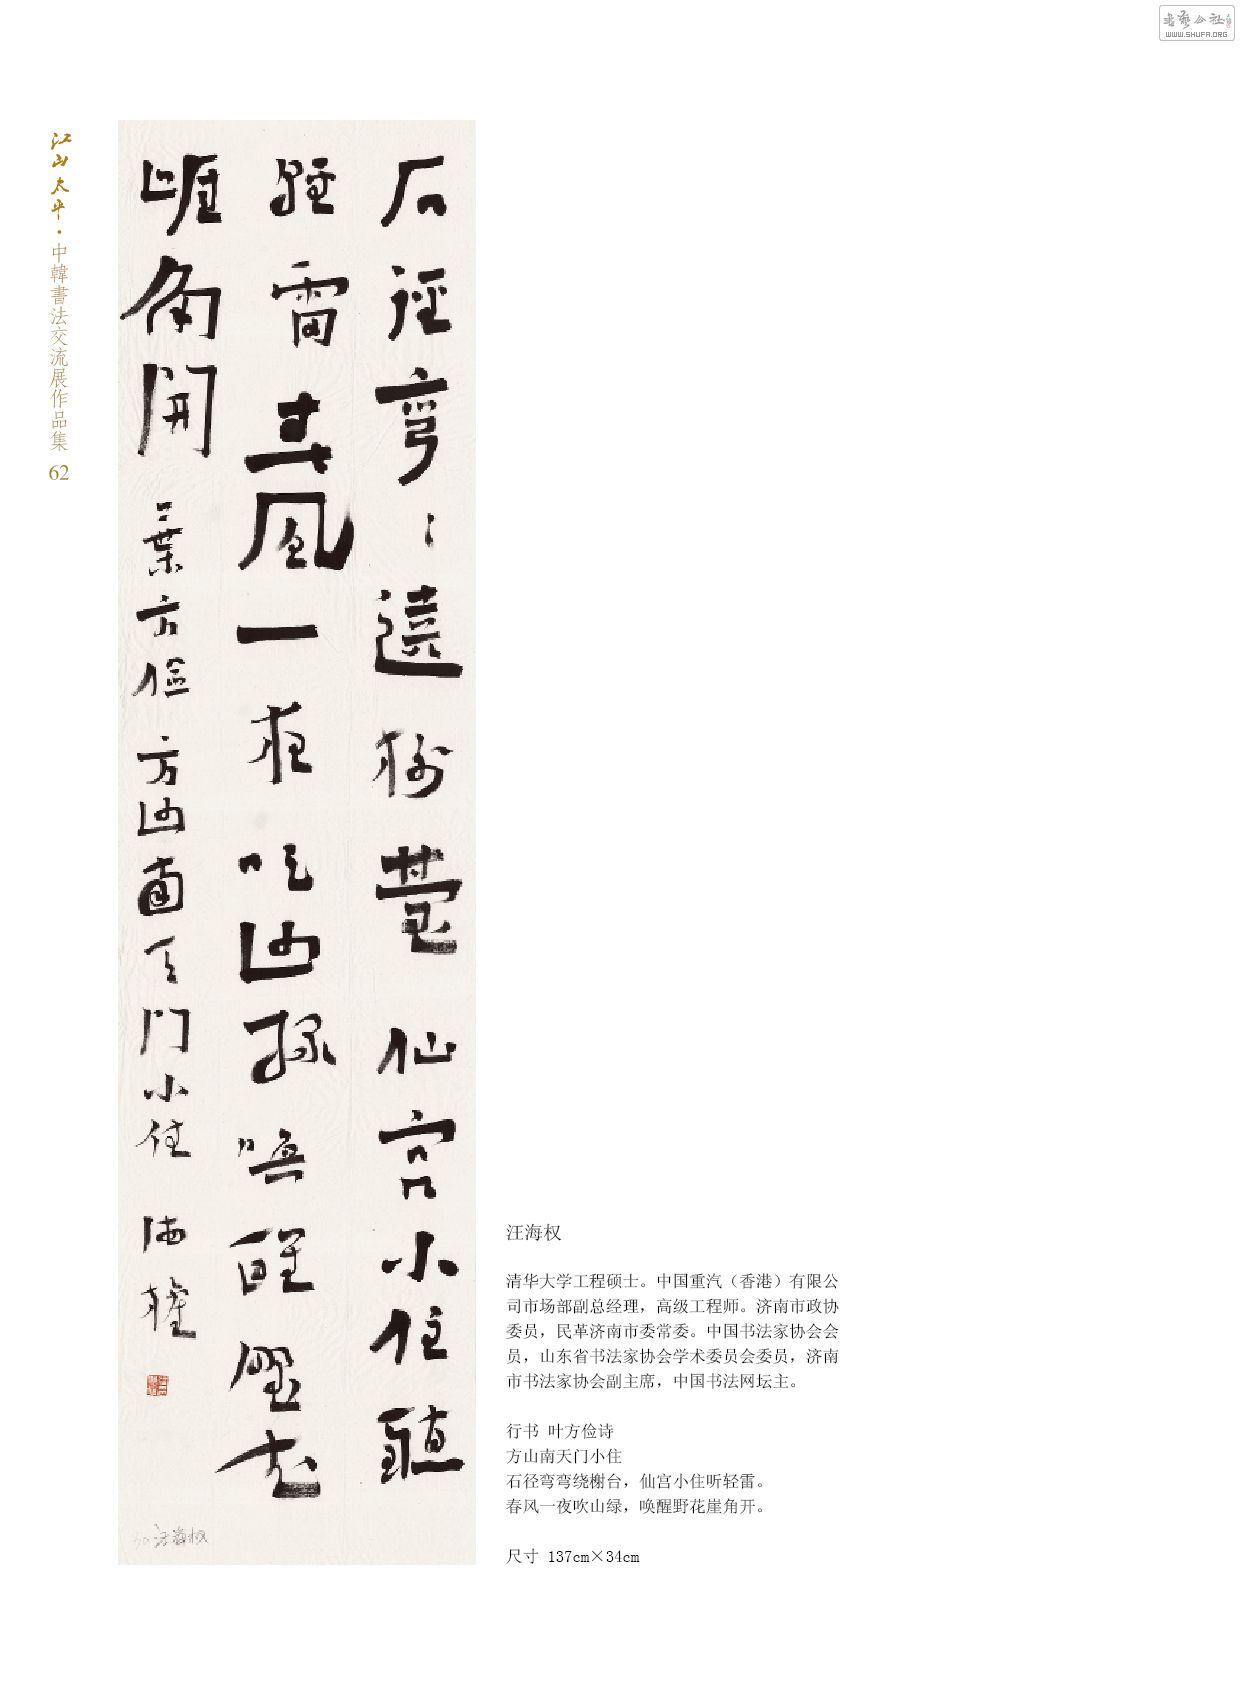 書藝公社
WWW.SHUFA.ORG
江山太平·中韓書法交流展作品集 62
石徑弯〻遶榭臺仙宮小住聽
輕雷春风一夜吹山綠喚醒壄花
崖角開 葉方俭 方山南天门小住 海權
汪海权
汪海权
清华大学工程硕士。中国重汽（香港）有限公
司市场部副总经理，高级工程师。济南市政协
委员，民革济南市委常委。中国书法家协会会
员，山东省书法家协会学术委员会委员，济南
市书法家协会副主席，中国书法网坛主。
行书 叶方俭诗
方山南天门小住
石径弯弯绕榭台，仙宫小住听轻雷。
春风一夜吹山绿，唤醒野花崖角开。
尺寸 137cm×34cm